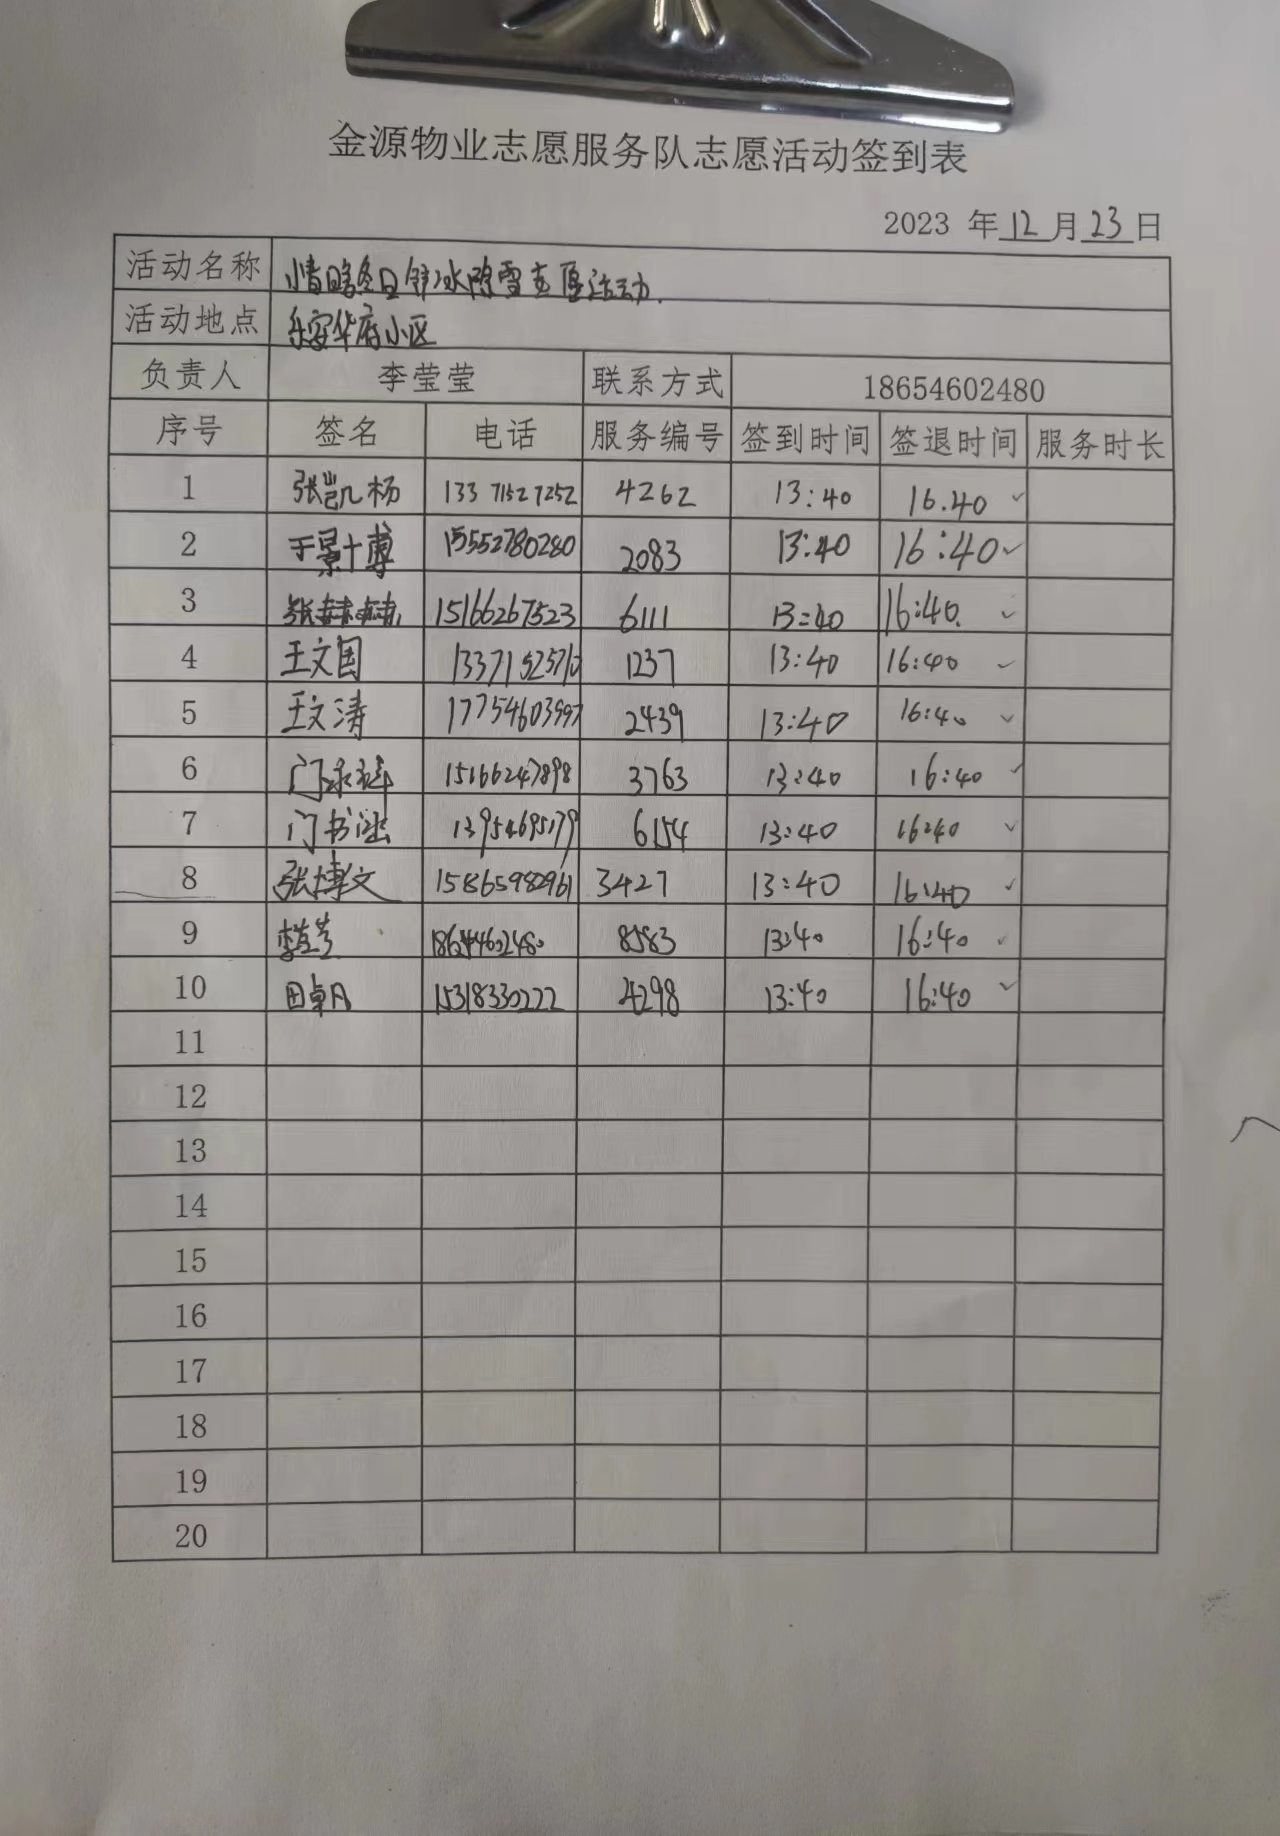 金源物业志愿服务队志愿活动签到表
2023 年 12 月 23 日
活动名称 情暖冬日铲冰除雪志愿活动.
活动地点 乐安华府小区
负责人 李莹莹 联系方式 18654602480
序号 签名 电话 服务编号 签到时间 签退时间 服务时长
1 张凯杨 13371527252 4262 13:40 16.40 ✓
2 于景博 15552780280 2083 13:40 16:40 ✓
3 张赫赫 15166267523 6111 13:40 16:40. ✓
4 王文国 13371525710 1237 13:40 16:40 ✓
5 王文涛 17754603997 2439 13:40 16:40 ✓
6 门 15166247898 3763 13:40 16:40 ✓
7 门书涵 13954695179 6154 13:40 16:40 ✓
8 张博文 15865982961 3427 13:40 16:40 ✓
9 李莹莹 18654602480 8583 13:40 16:40 ✓
10 田卓凡 15318330222 4298 13:40 16:40 ✓
11
12
13
14
15
16
17
18
19
20